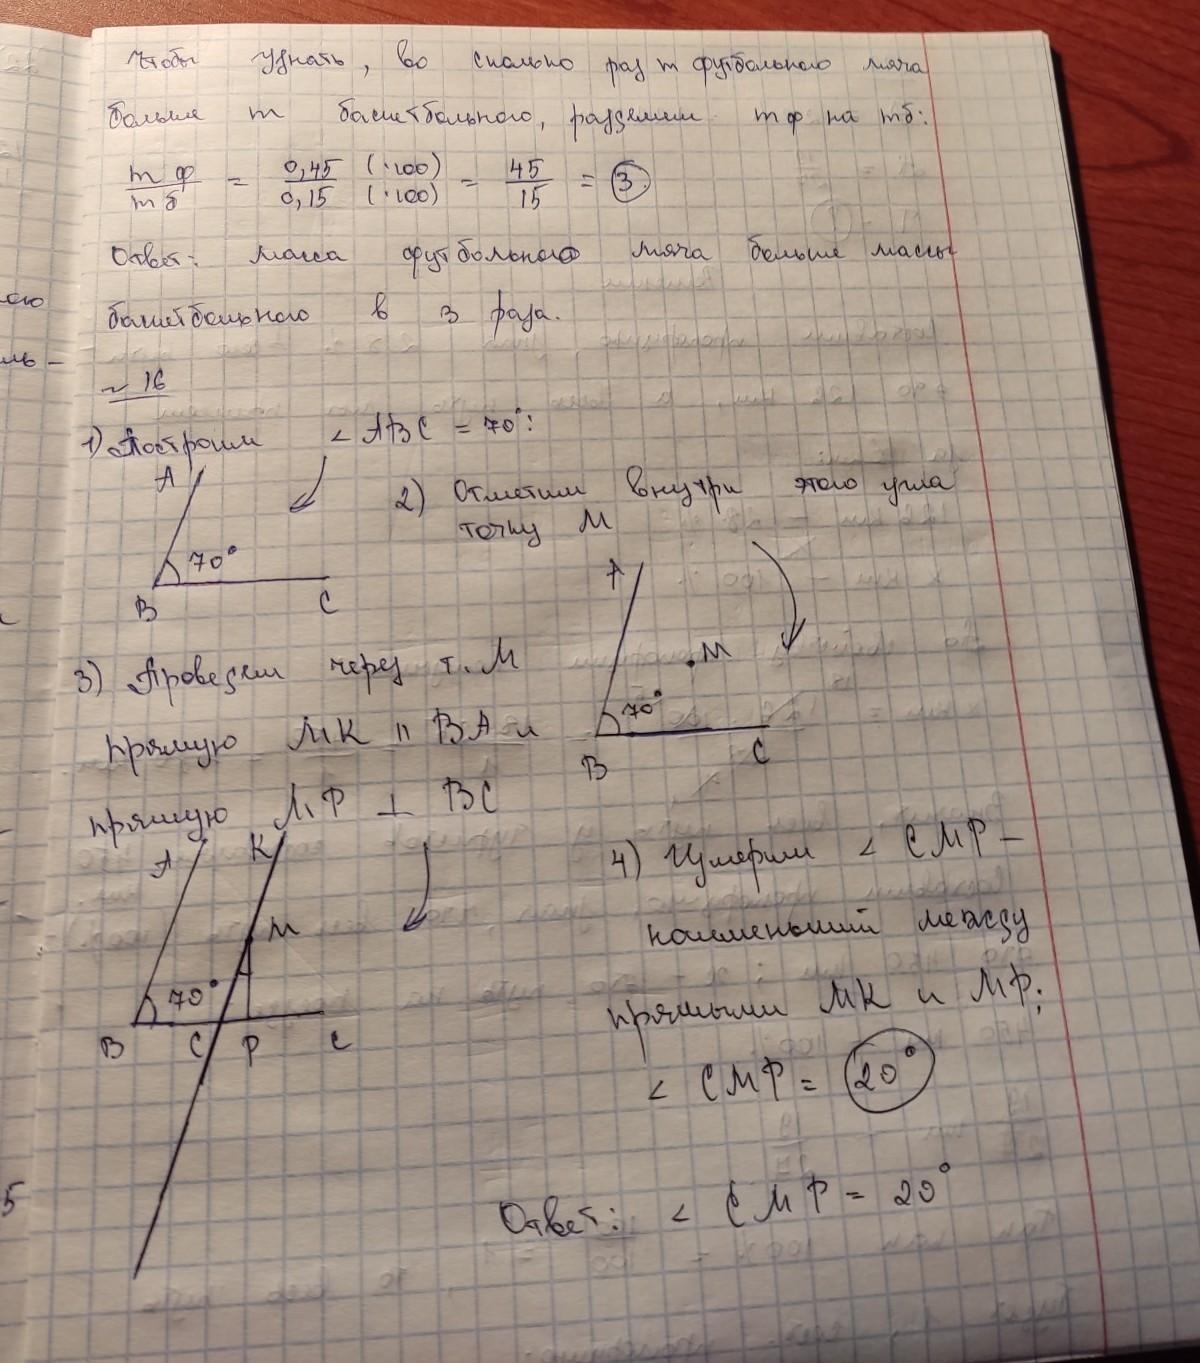 Чтобы узнать, во сколько раз m футбольного мяча
больше m баскетбольного, разделим mф на mб:
mф/mб = 0,45 (·100)/0,15 (·100) = 45/15 = 3
Ответ: масса футбольного мяча больше массы
баскетбольного в 3 раза.
ою
ль -
~ 16
1) Построим < ABC = 70°:
A
70°
B
C
2) Отметим внутри этого угла
точку M
A
M
70°
B
C
3) Проведем через т. M
прямую MK || BA и
прямую MP ⊥ BC
A
K
M
70°
B
C
P
C
4) Измерим < CMP -
наименьший между
прямыми MK и MP:
< CMP = 20°
5
Ответ: < CMP = 20°